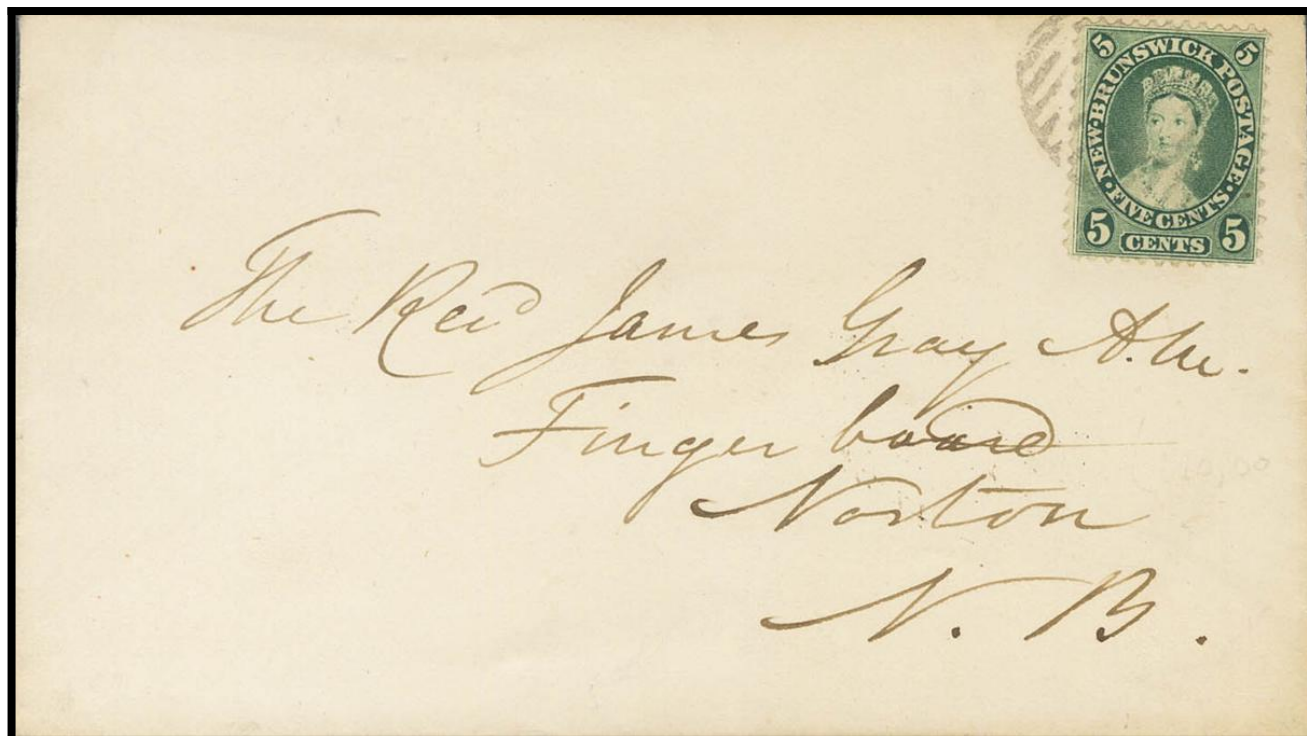 5 NEW·BRUNSWICK POSTAGE· 5
FIVE CENTS
5 CENTS 5
The Revd James Gray A.M.
Finger board
Norton
N. B.
10,00